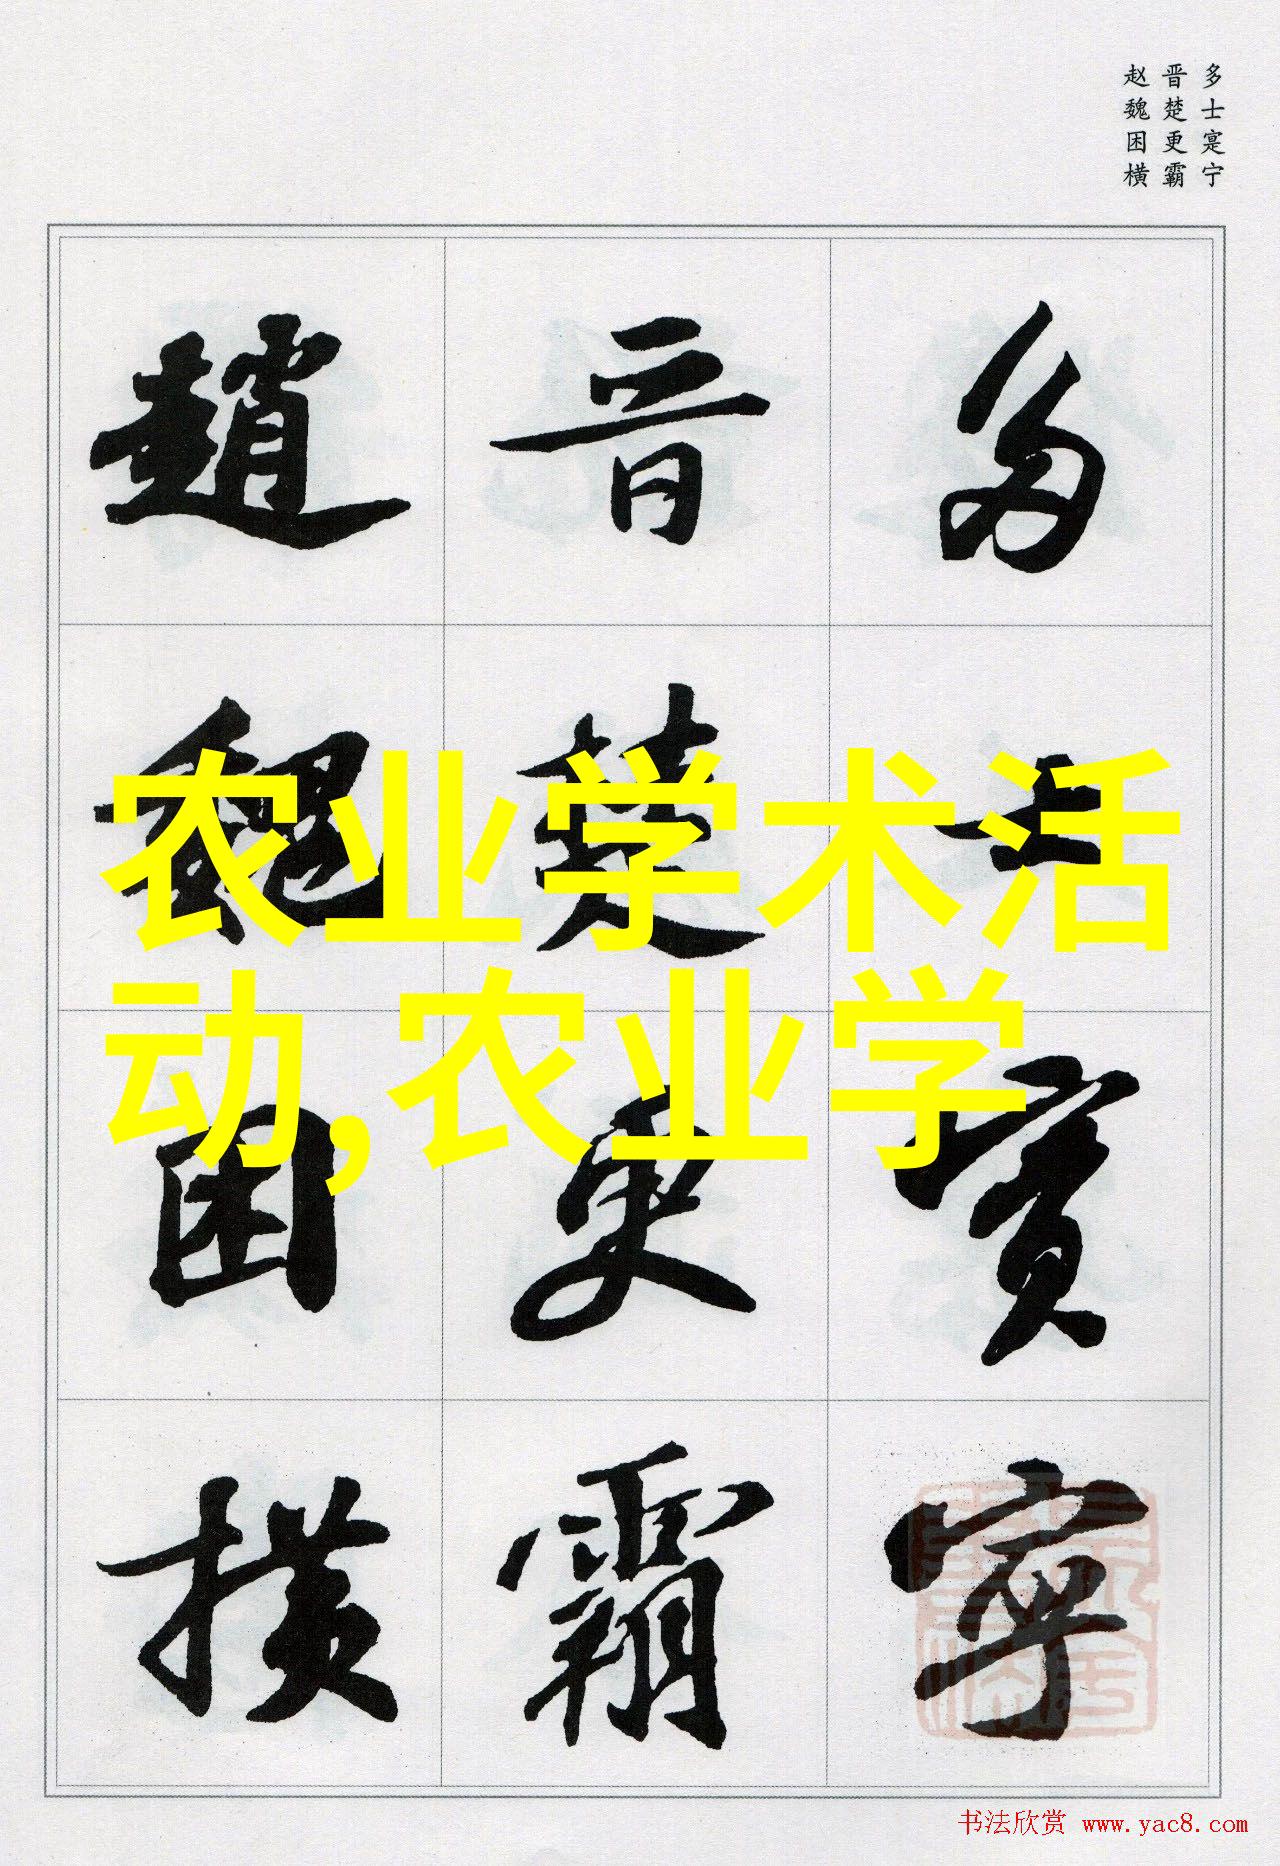 多士寔宁
晋楚更霸
赵魏困横
多士寔寧
晋楚更霸
趙魏困横
农业学术活
动,农业学
书法欣赏 www.yac8.com